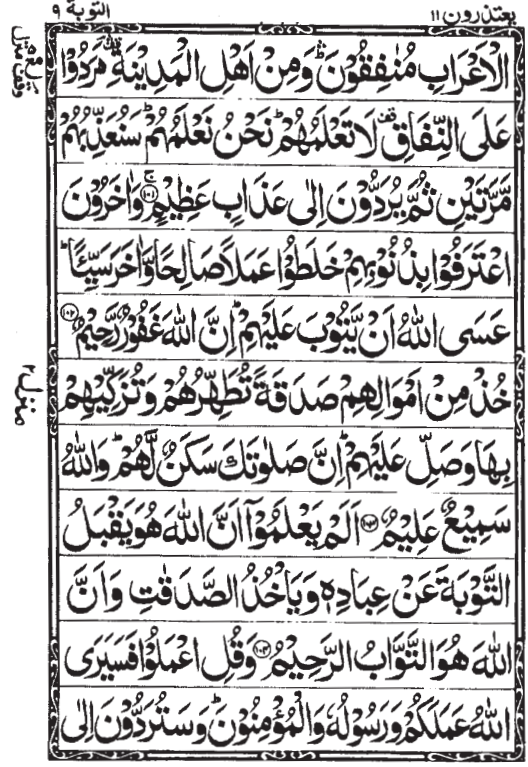 يعتذرون ١١
التوبة ٩
الْاَعْرَابِ مُنٰفِقُوْنَ ۛؕ وَمِنْ اَهْلِ الْمَدِيْنَةِ ۛؔ مَرَدُوْا
عَلَى النِّفَاقِ ۫ لَا تَعْلَمُهُمْ ؕ نَحْنُ نَعْلَمُهُمْ ؕ سَنُعَذِّبُهُمْ
مَّرَّتَيْنِ ثُمَّ يُرَدُّوْنَ اِلٰى عَذَابٍ عَظِيْمٍ ۚ‏﴿۱۰۱﴾ وَاٰخَرُوْنَ
اعْتَرَفُوْا بِذُنُوْبِهِمْ خَلَطُوْا عَمَلًا صَالِحًا وَّاٰخَرَ سَيِّئًا ؕ
عَسَى اللّٰهُ اَنْ يَّتُوْبَ عَلَيْهِمْ ؕ اِنَّ اللّٰهَ غَفُوْرٌ رَّحِيْمٌ ﴿۱۰۲﴾
خُذْ مِنْ اَمْوَالِهِمْ صَدَقَةً تُطَهِّرُهُمْ وَتُزَكِّيْهِمْ
بِهَا وَصَلِّ عَلَيْهِمْ ؕ اِنَّ صَلٰوتَكَ سَكَنٌ لَّهُمْ ؕ وَاللّٰهُ
سَمِيْعٌ عَلِيْمٌ ﴿۱۰۳﴾ اَلَمْ يَعْلَمُوْۤا اَنَّ اللّٰهَ هُوَ يَقْبَلُ
التَّوْبَةَ عَنْ عِبَادِهٖ وَيَاْخُذُ الصَّدَقٰتِ وَاَنَّ
اللّٰهَ هُوَ التَّوَّابُ الرَّحِيْمُ ﴿۱۰۴﴾ وَقُلِ اعْمَلُوْا فَسَيَرَى
اللّٰهُ عَمَلَكُمْ وَرَسُوْلُهٗ وَالْمُؤْمِنُوْنَ ؕ وَسَتُرَدُّوْنَ اِلٰى
منزل ٢